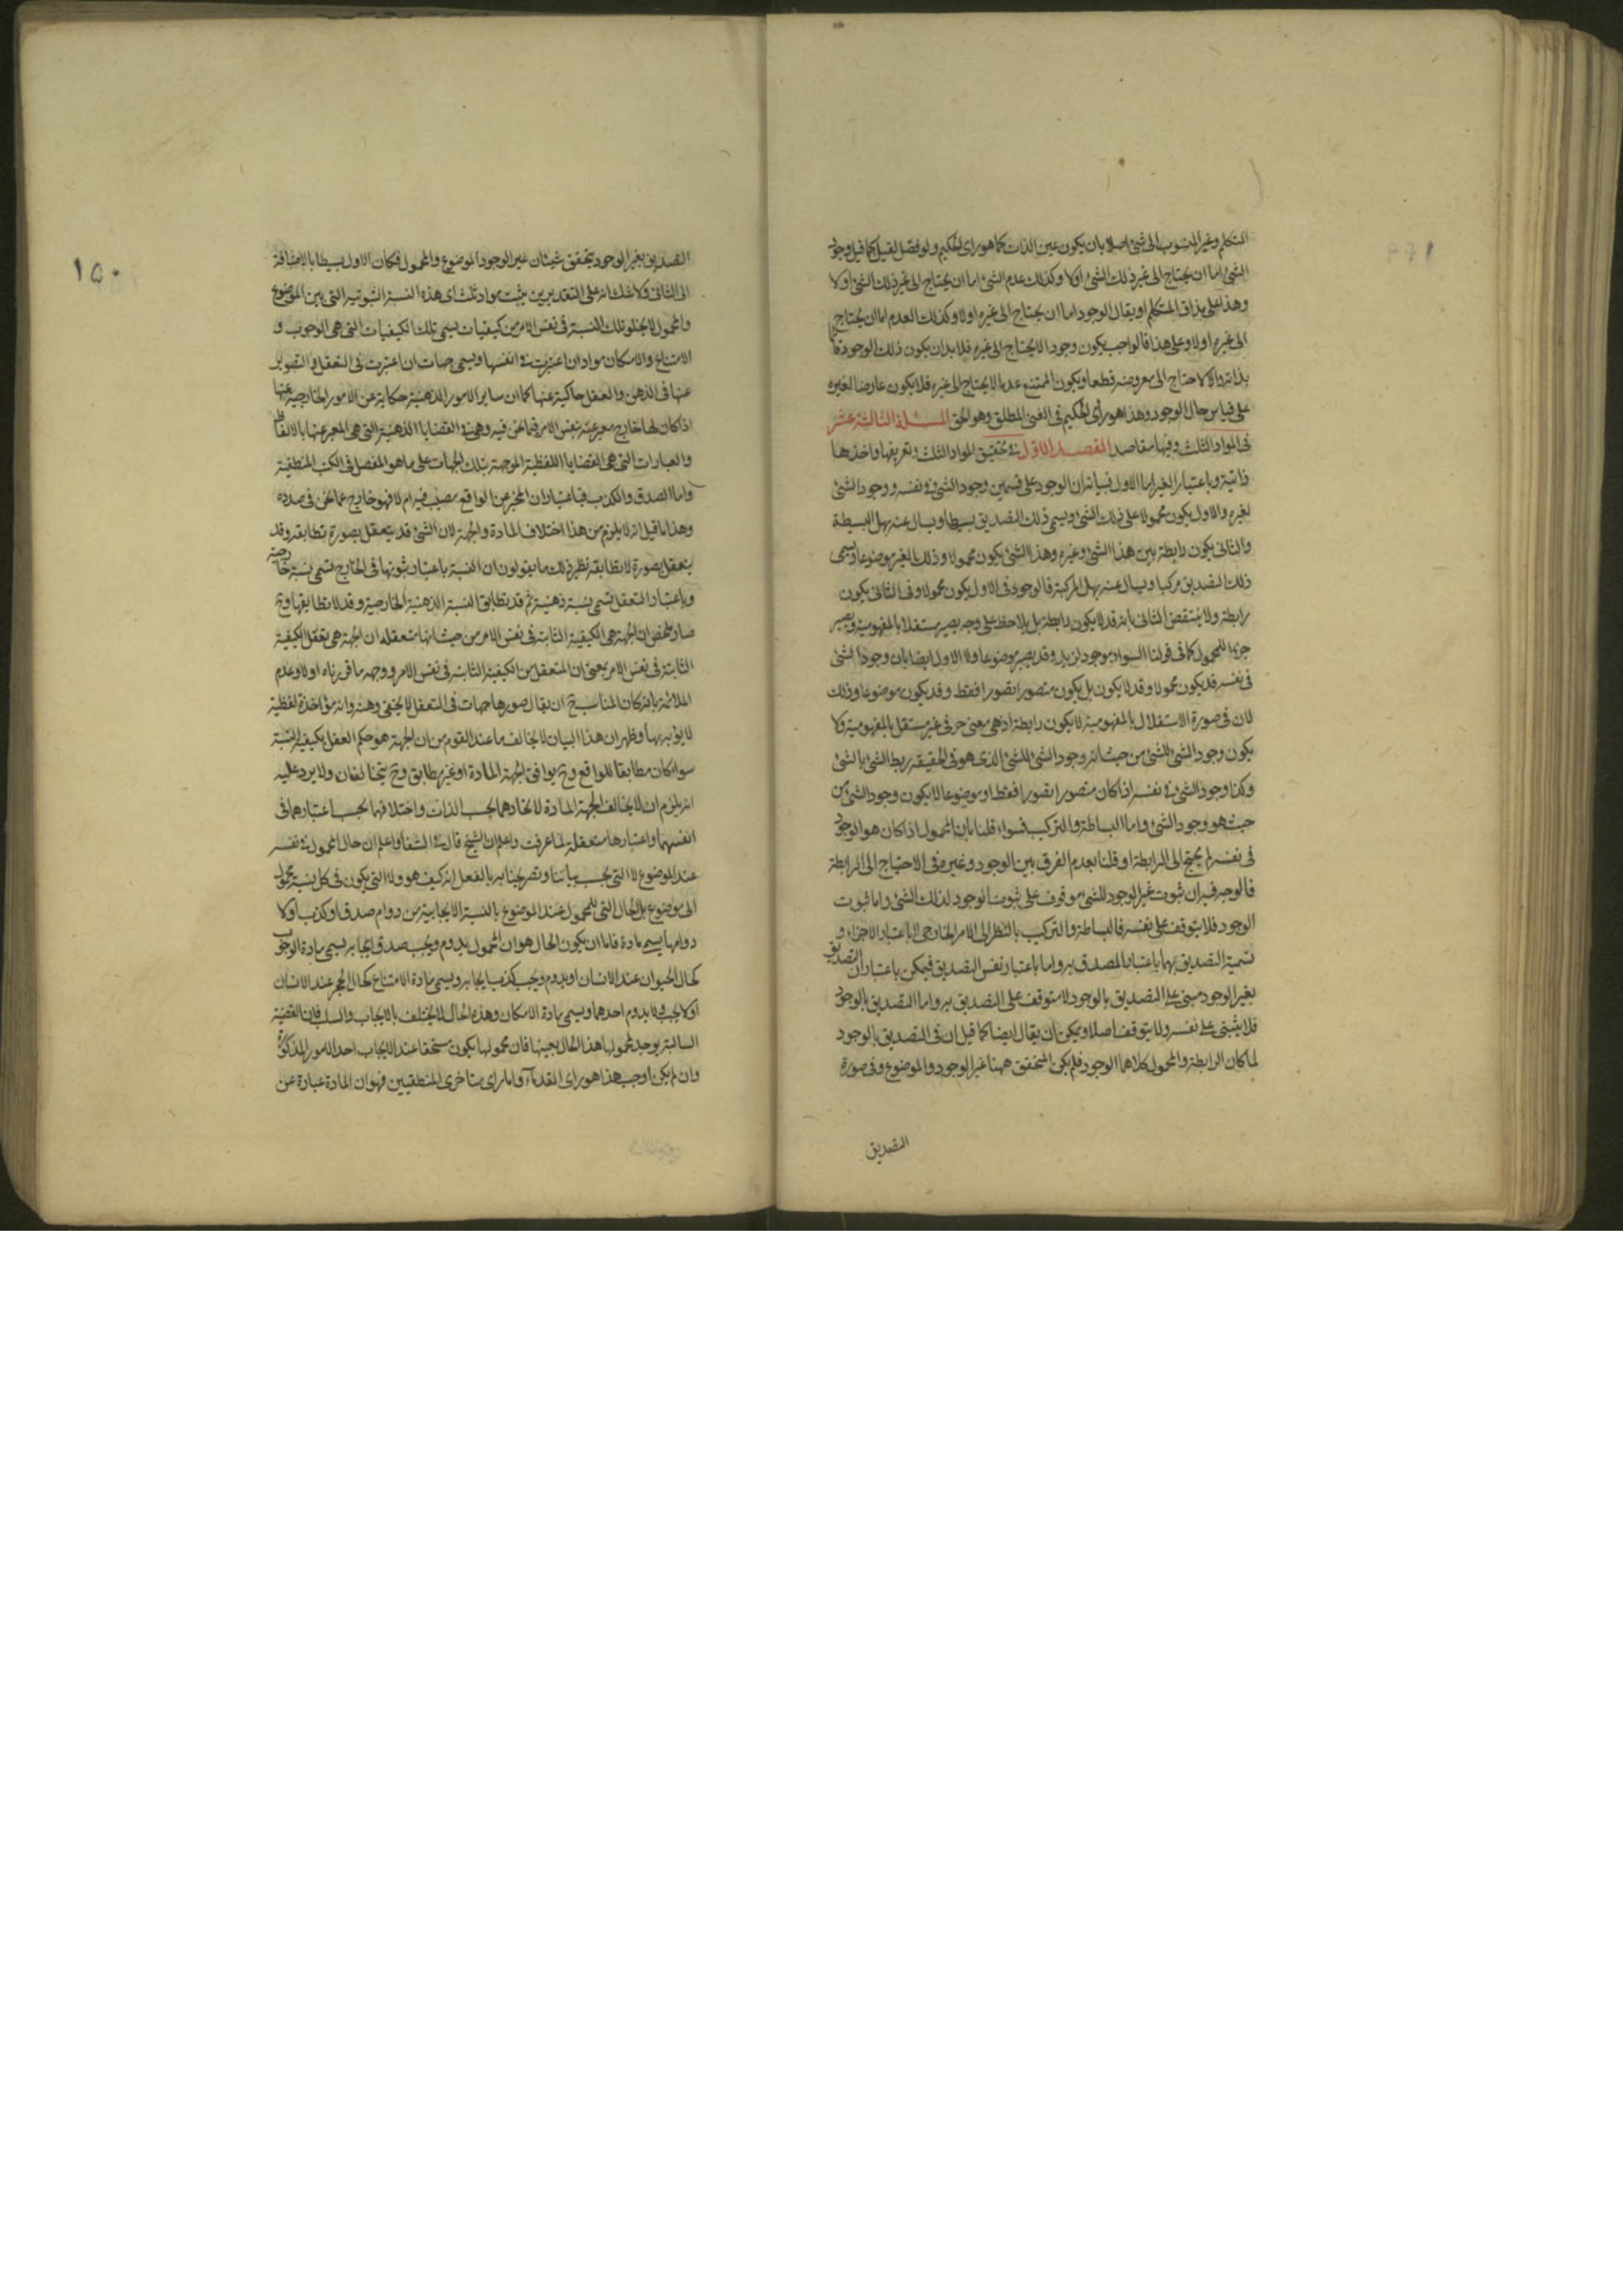 المتكلم وغير المنسوب الى شئ اصلا بان يكون عين الذات كما هو راى الحكيم ولو فصل لقيل كما قيل وجود
الشئ اما ان يحتاج الى غير ذلك الشئ اولا وكذلك عدم الشئ اما ان يحتاج الى غير ذلك الشئ اولا
وهذا على مذاق المتكلم او يقال الوجود اما ان يحتاج الى غيره اولا وكذلك العدم اما ان يحتاج
الى غيره اولا وعلى هذا فالواجب يكون وجودا لا يحتاج الى غيره فلا بد ان يكون ذلك الوجود قائما
بذاته والا لاحتاج الى معروضه قطعا ويكون الممتنع عدما لا يحتاج الى غيره فلا يكون عارضا لغيره
على قياس حال الوجود وهذا هو راى الحكيم فى الغنى المطلق وهو الحق المسئلة الثالثة عشر
فى المواد الثلث وفيها مقاصد المقصد الاول فى تحقيق المواد الثلث وتعريفها واخذها
ذاتية وباعتبار الغير اما الاول فبيانه ان الوجود على قسمين وجود الشئ فى نفسه ووجود الشئ
لغيره والاول يكون محمولا على ذلك الشئ ويسمى ذلك التصديق بسيطا ويسال عنه بهل البسيطة
والثانى يكون رابطة بين هذا الشئ وغيره وهذا الشئ يكون محمولا وذلك الغير موضوعا ويسمى
ذلك التصديق مركبا ويسال عنه بهل المركبة فالوجود فى الاول يكون محمولا وفى الثانى يكون
رابطة ولا ينتقض الثانى بانه قد لا يكون رابطة بل يلاحظ على وجه يصير مستقلا بالمفهومية ويصير
جزءا للمحمول كما فى قولنا السواد موجود لزيد وقد يصير موضوعا ولا الاول ايضا بان وجود الشئ
فى نفسه قد يكون محمولا وقد لا يكون بل يكون متصورا تصورا فقط وقد يكون موضوعا وذلك
لان فى صورة الاستقلال بالمفهومية لا يكون رابطة اذ هى معنى حرفى غير مستقل بالمفهومية ولا
يكون وجود الشئ للشئ من حيث انه وجود الشئ للشئ الذى هو فى الحقيقة ربط الشئ بالشئ
وكذا وجود الشئ فى نفسه اذا كان متصورا تصورا فقط او موضوعا لا يكون وجود الشئ من
حيث هو وجود الشئ واما البساطة والتركيب فسواء قلنا بان المحمول اذا كان هو الوجود
فى نفسه لم يحتج الى الرابطة او قلنا بعدم الفرق بين الوجود وغيره فى الاحتياج الى الرابطة
فالوجه فيه ان ثبوت غير الوجود للشئ موقوف على ثبوت الوجود لذلك الشئ واما ثبوت
الوجود فلا يتوقف على نفسه فالبساطة والتركيب بالنظر الى الامر الخارجى لا باعتبار الاجزاء و
تسمية التصديق بهما باعتبار المصدق به واما باعتبار نفس التصديق فيمكن باعتبار ان التصديق
بغير الوجود مبنى على التصديق بالوجود لا متوقف على التصديق به واما التصديق بالوجود
فلا يبتنى على نفسه ولا يتوقف اصلا ويمكن ان يقال ايضا كما قيل ان فى التصديق بالوجود
لما كان الرابطة والمحمول كلاهما الوجود فلم يكن المتحقق ههنا غير الوجود والموضوع وفى صورة
التصديق
١٥٠
التصديق بغير الوجود يتحقق شيئان غير الوجود الموضوع والمحمول فكان الاول بسيطا بالاضافة
الى الثانى ولا شك انه على التقديرين يثبت مواد ثلث اى هذه النسبة الثبوتية التى بين الموضوع
والمحمول لا يخلو تلك النسبة فى نفس الامر من كيفيات يسمى تلك الكيفيات التى هى الوجوب و
الامتناع والامكان مواد ان اعتبرت فى انفسها ويسمى جهات ان اعتبرت فى التعقل والتصوير
عنها فى الذهن والعقل حاكية عنها كما ان ساير الامور الذهنية حكاية عن الامور الخارجية عنها
اذا كان لها خارج معبر عنه بنفس الامر فيما نحن فيه وهى فى القضايا الذهنية التى هى المعبر عنها بالالفاظ
والعبارات التى هى القضايا اللفظية الموجهة بتلك الجهات على ما هو المفصل فى الكتب المنطقية
واما الصدق والكذب فباعتبار ان المخبر عن الواقع مصيب فيه ام لا فهو خارج عما نحن فى صدده
وهذا ما قيل انه لا يلزم من هذا اختلاف المادة والجهة لان الشئ قد يتعقل بصورة تطابقه وقد
يتعقل بصورة لا تطابقه نظير ذلك ما يقولون ان النسبة باعتبار ثبوتها فى الخارج تسمى نسبة خارجية
وباعتبار التعقل تسمى نسبة ذهنية ثم قد تطابق النسبة الذهنية الخارجية وقد لا تطابقها وح
صار ملخص ان الجهة هى الكيفية الثابتة فى نفس الامر من حيث انها متعقلة او ان الجهة هى تعقل الكيفية
الثابتة فى نفس الامر بمعنى ان المتعقل من الكيفية الثابتة فى نفس الامر ووجهه ما قررناه اولا وعدم
الملائمة بانه كان المناسب ح ان يقال صورها جهات فى التعقل لا يخفى وهنه وانه مؤاخذة لفظية
لا يؤبه بها وظهر ان هذا البيان لا يخالف ما عند القوم من ان الجهة هو حكم العقل بكيفية النسبة
سواء كان مطابقا للواقع وح يوافق الجهة المادة او غير مطابق وح يتخالفان ولا يرد عليه
انه يلزم ان لا يخالف الجهة المادة لاتحادهما بحسب الذات واختلافهما بحسب اعتبارهما فى
انفسهما واعتبارها متعقلة لما عرفت واعلم ان الشيخ قال فى الشفا واعلم ان حال المحمول فى نفسه
عند الموضوع لا التى بحسب بياننا وتصريحنا به بالفعل انه كيف هو ولا التى يكون فى كل نسبة محمول
الى موضوع بل الحال التى للمحمول عند الموضوع بالنسبة الايجابية من دوام صدق او كذب اولا
دوامها يسمى مادة فاما ان يكون الحال هو ان المحمول يدوم ويجب صدق ايجابه يسمى مادة الوجوب
كحال الحيوان عند الانسان او يدوم ويجب كذب ايجابه ويسمى مادة الامتناع كحال الحجر عند الانسان
او لا يجب ولا يدوم احدهما ويسمى مادة الامكان وهذه الحال لا يختلف بالايجاب والسلب فان القضية
السالبة يوجد لمحمولها هذا الحال بعينها فان محمولها يكون مستحقا عند الايجاب احد الامور المذكورة
وان لم يكن اوجب هذا هو راى القدماء واما راى متاخرى المنطقيين فهو ان المادة عبارة عن